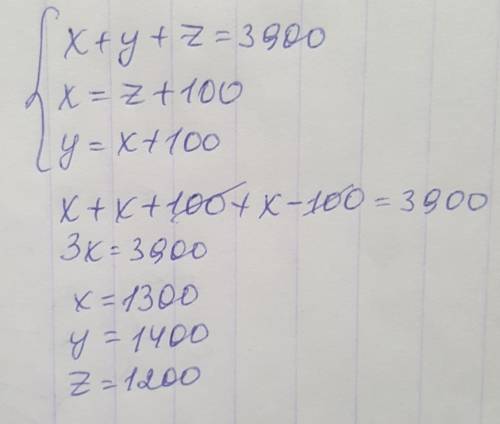 x + y + z = 3900
x = z + 100
y = x + 100
x + x + 100 + x - 100 = 3900
3x = 3900
x = 1300
y = 1400
z = 1200